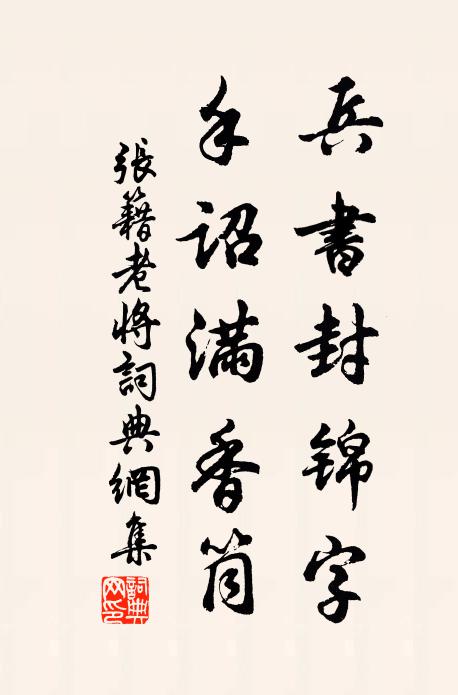 兵書封锦字
手詔满香筒
張籍老將詞典網集
詞典网印